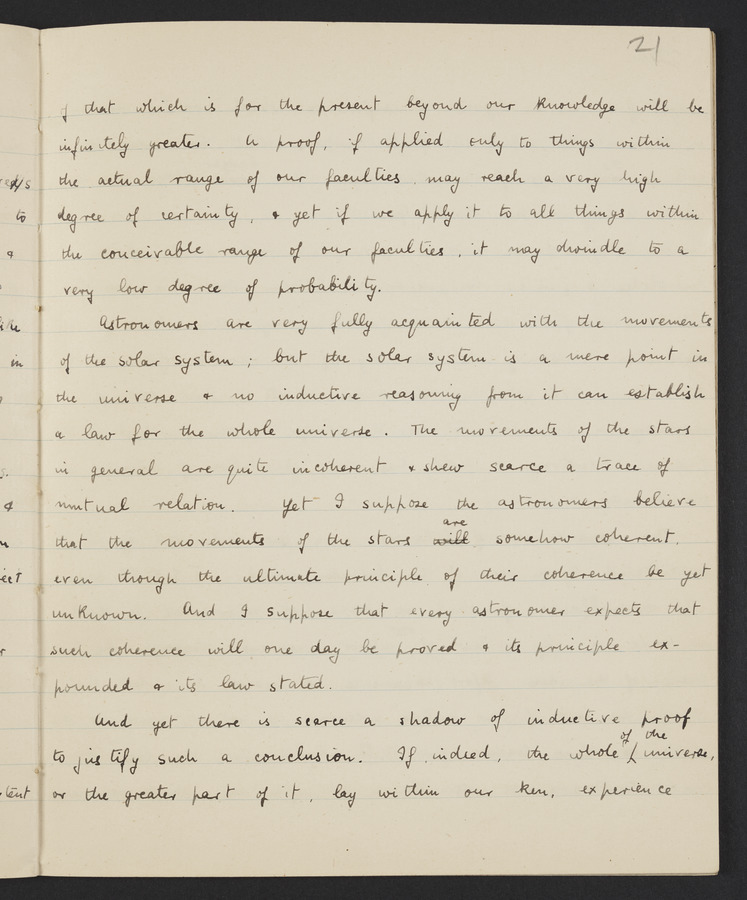 21
of that which is for the present beyond our knowledge will be
infinitely greater. A proof, if applied only to things within
the actual range of our faculties may reach a very high
degree of certainty, & yet if we apply it to all things within
the conceivable range of our faculties, it may dwindle to a
very low degree of probability.
Astronomers are very fully acquainted with the movements
of the solar system; but the solar system is a mere point in
the universe & no inductive reasoning from it can establish
a law for the whole universe. The movements of the stars
in general are quite incoherent & shew scarce a trace of
mutual relation. Yet I suppose the astronomers believe
are
that the movements of the stars will somehow coherent,
even though the ultimate principle of their coherence be yet
unknown. And I suppose that every astronomer expects that
such coherence will one day be proved & its principle ex-
pounded & its law stated.
And yet there is scarce a shadow of inductive proof
of the
to justify such a conclusion. If indeed, the whole universe,
or the greater part of it, lay within our ken, experience
to
&
in
&